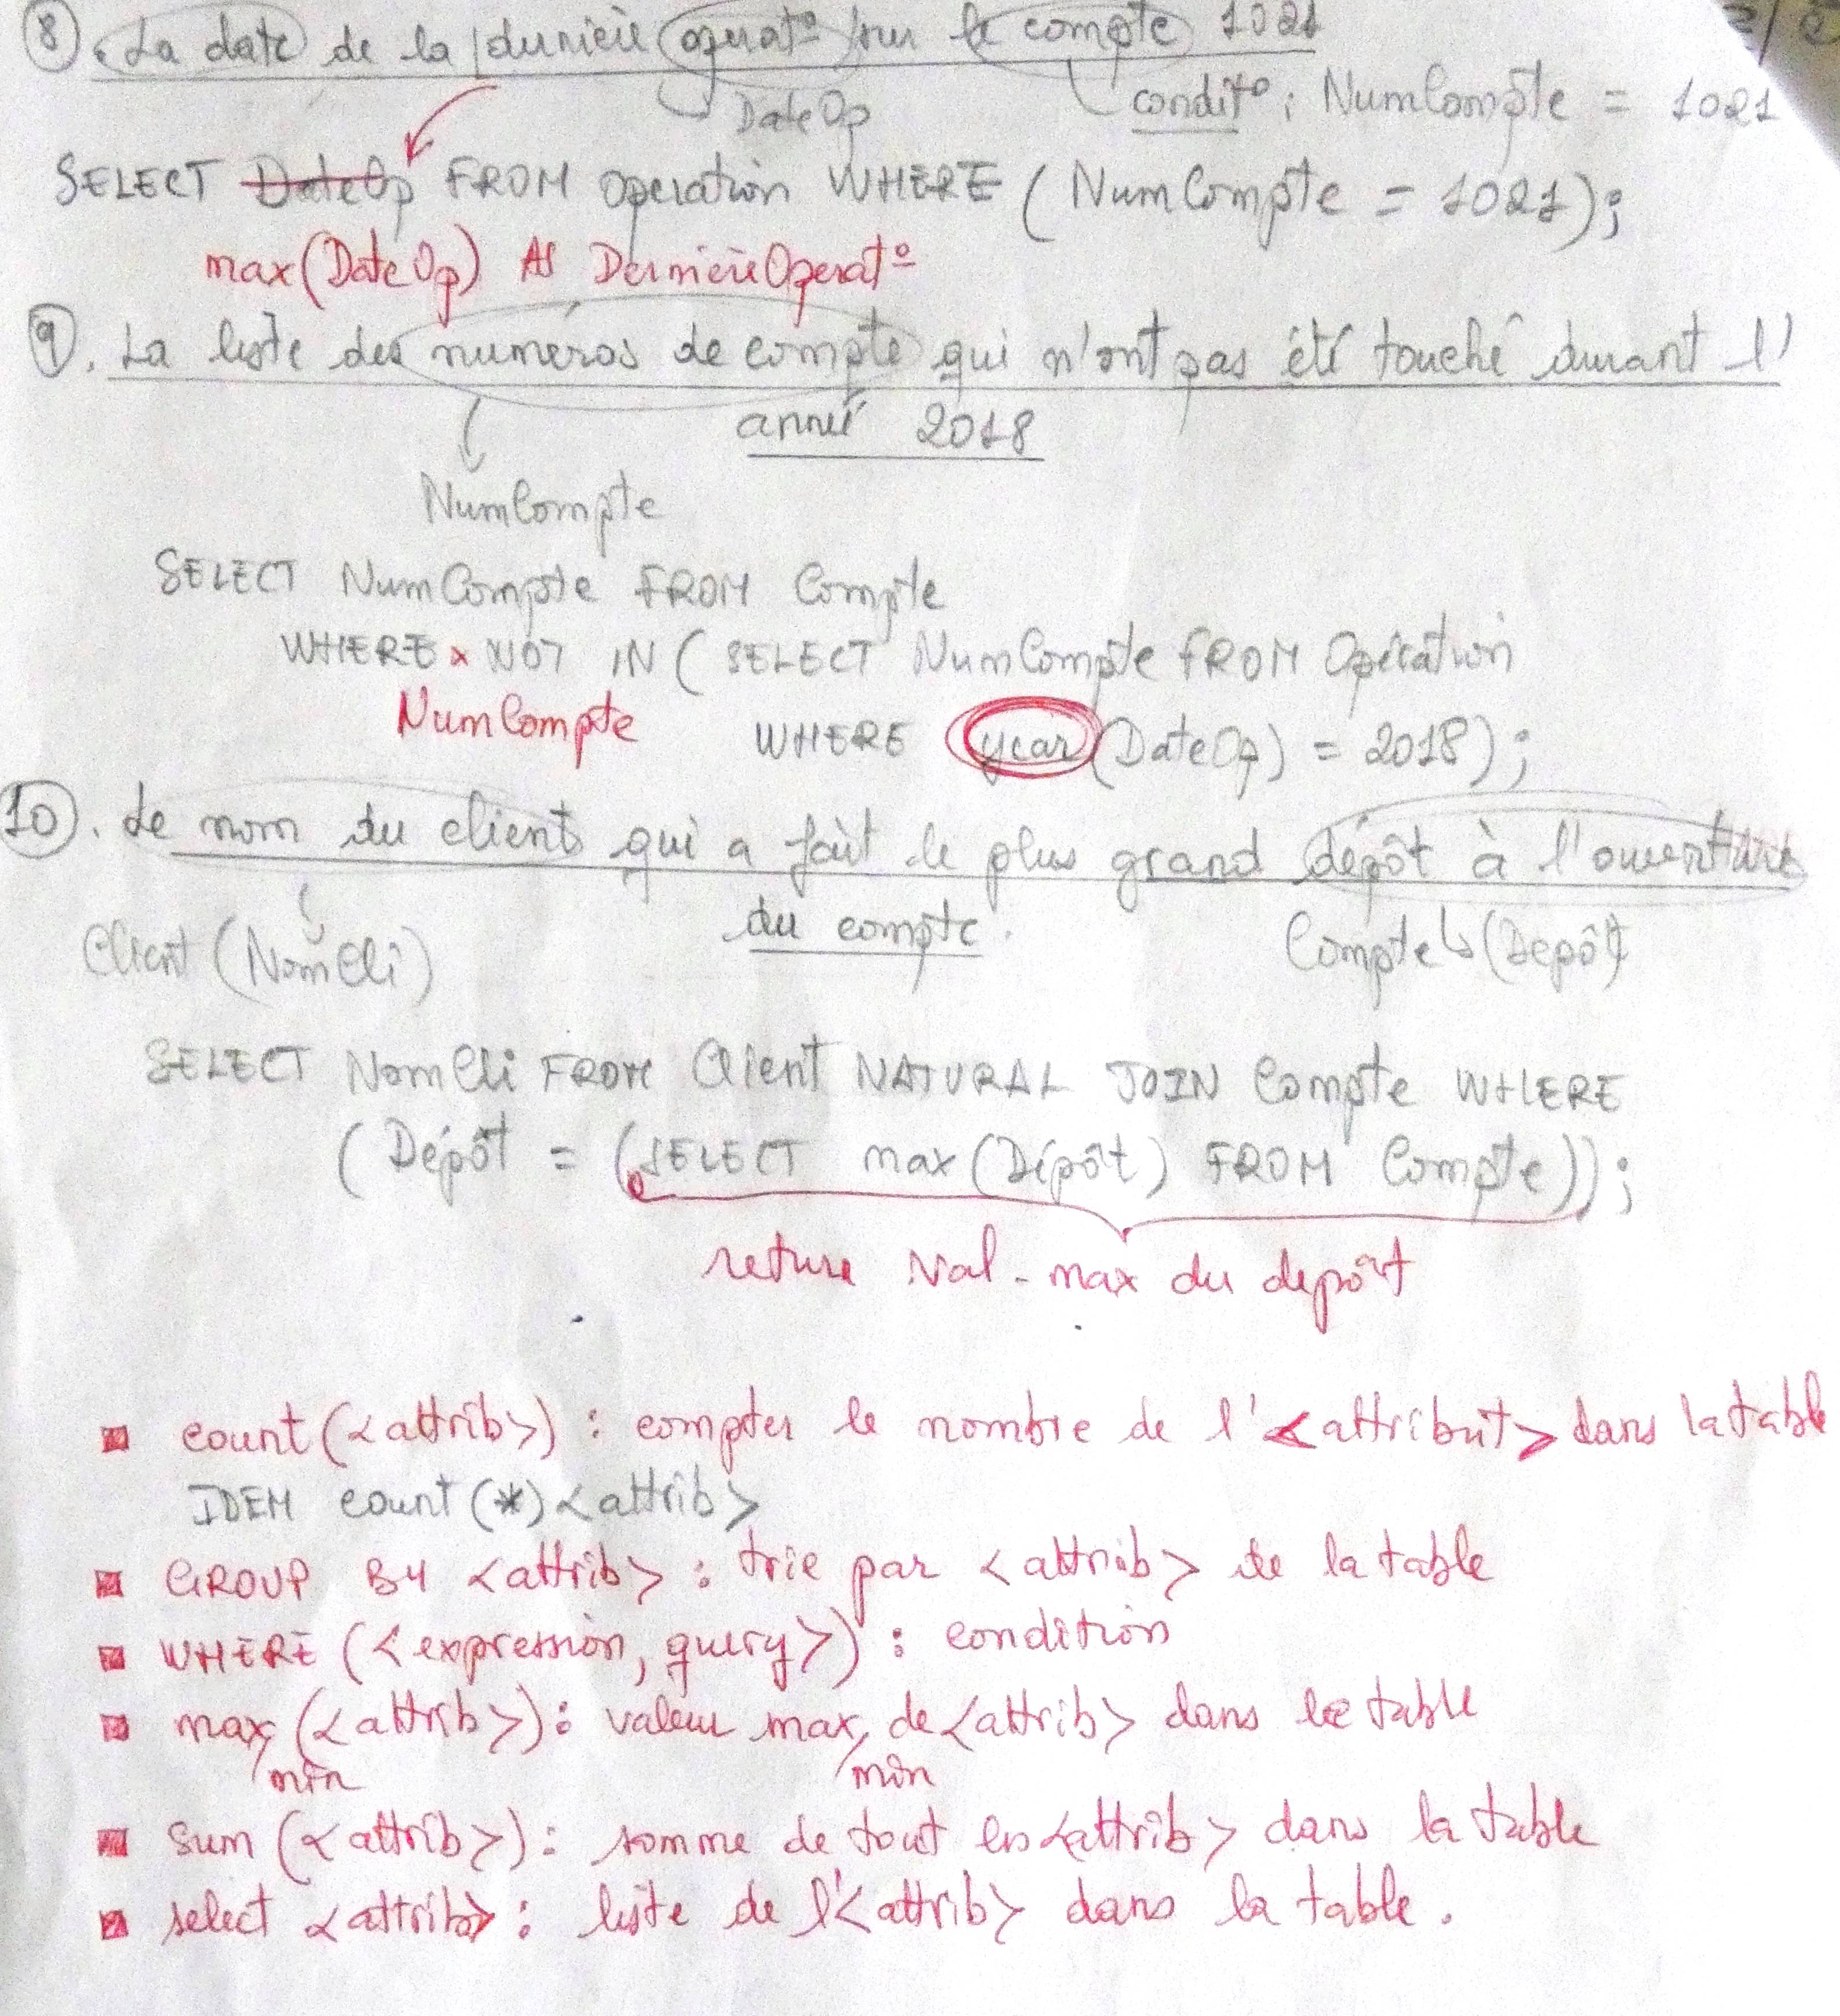 8. La date de la dernière operat° sur le compte 1021
DateOp
condit° : NumCompte = 1021
SELECT DateOp FROM operation WHERE (NumCompte = 1021);
max(DateOp) AS DernièreOperat°
9. La liste des numéros de compte qui n'ont pas été touché durant l'
année 2018
NumCompte
SELECT NumCompte FROM Compte
WHERE x NOT IN ( SELECT NumCompte FROM Opération
NumCompte WHERE year(DateOp) = 2018);
10. Le nom du client qui a fait le plus grand dépôt à l'ouverture
du compte.
Client (NomCli)
Compte (Depôt)
SELECT NomCli FROM Client NATURAL JOIN Compte WHERE
( Dépôt = (SELECT max(Dépôt) FROM Compte));
Val-max du depôt
count(<attrib>) : compter le nombre de l'<attribut> dans la table
IDEM count(*)<attrib>
GROUP BY <attrib> : trie par <attrib> de la table
WHERE (<expression, query>) : condition
max (<attrib>): valeur max de <attrib> dans la table
/min /min
sum (<attrib>): somme de tout les <attrib> dans la table
select <attrib> : liste de l'<attrib> dans la table.